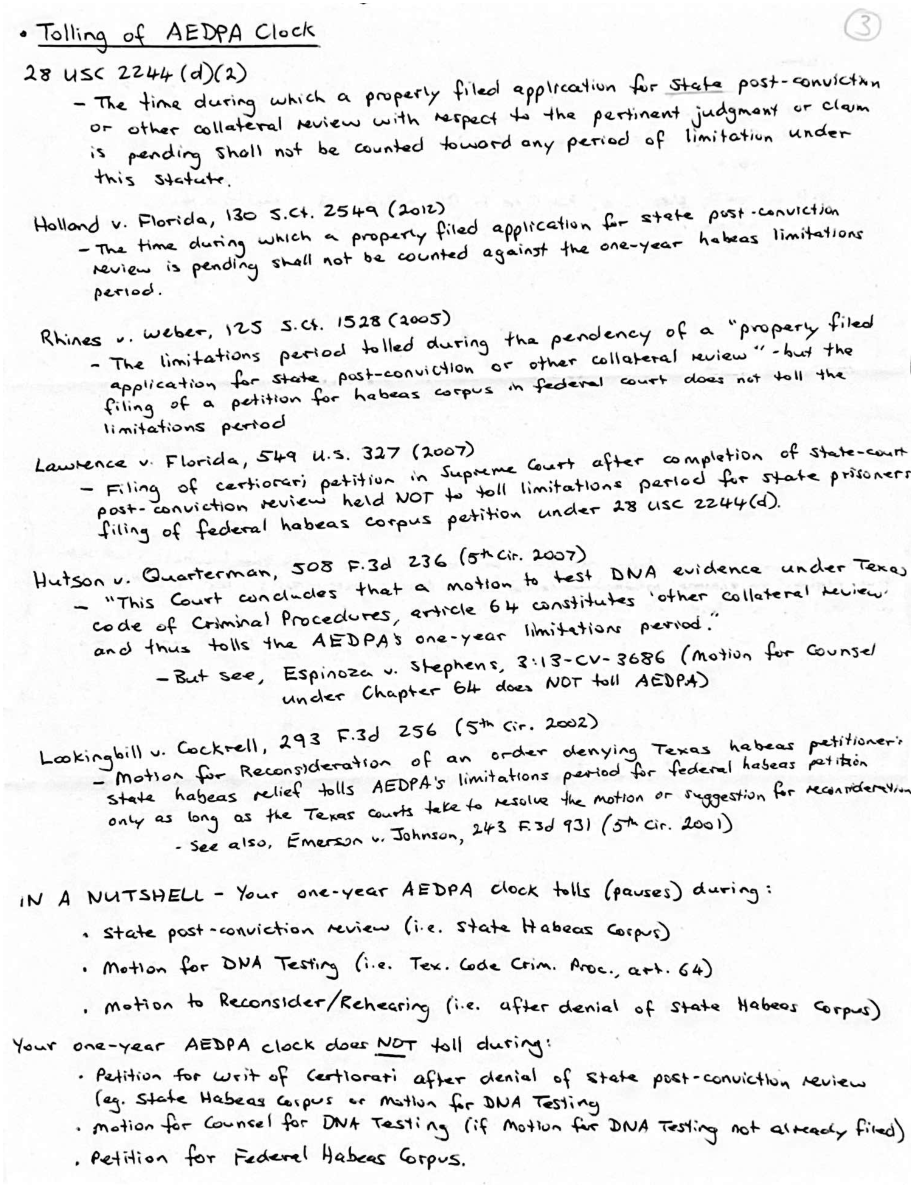 3
• Tolling of AEDPA Clock
28 USC 2244(d)(2)
- The time during which a properly filed application for state post-conviction
or other collateral review with respect to the pertinent judgment or claim
is pending shall not be counted toward any period of limitation under
this statute.
Holland v. Florida, 130 S.Ct. 2549 (2012)
- The time during which a properly filed application for state post-conviction
review is pending shall not be counted against the one-year habeas limitations
period.
Rhines v. Weber, 125 S.Ct. 1528 (2005)
- The limitations period tolled during the pendency of a "properly filed
application for state post-conviction or other collateral review" - but the
filing of a petition for habeas corpus in federal court does not toll the
limitations period
Lawrence v. Florida, 549 U.S. 327 (2007)
- Filing of certiorari petition in Supreme Court after completion of state-court
post-conviction review held NOT to toll limitations period for state prisoners
filing of federal habeas corpus petition under 28 USC 2244(d).
Hutson v. Quarterman, 508 F.3d 236 (5th Cir. 2007)
- "This Court concludes that a motion to test DNA evidence under Texas
code of Criminal Procedures, article 64 constitutes 'other collateral review'
and thus tolls the AEDPA's one-year limitations period."
- But see, Espinoza v. Stephens, 3:13-CV-3686 (Motion for Counsel
under Chapter 64 does NOT toll AEDPA)
Lookingbill v. Cockrell, 293 F.3d 256 (5th Cir. 2002)
- Motion for Reconsideration of an order denying Texas habeas petitioner's
state habeas relief tolls AEDPA's limitations period for federal habeas petition
only as long as the Texas courts take to resolve the motion or suggestion for reconsideration
- See also, Emerson v. Johnson, 243 F.3d 931 (5th Cir. 2001)
IN A NUTSHELL - Your one-year AEDPA clock tolls (pauses) during:
• State post-conviction review (i.e. State Habeas Corpus)
• Motion for DNA Testing (i.e. Tex. Code Crim. Proc., art. 64)
• Motion to Reconsider/Rehearing (i.e. after denial of State Habeas Corpus)
Your one-year AEDPA clock does NOT toll during:
• Petition for Writ of Certiorari after denial of State post-conviction review
(eg. State Habeas Corpus or Motion for DNA Testing
• Motion for Counsel for DNA Testing (if Motion for DNA Testing not already filed)
• Petition for Federal Habeas Corpus.